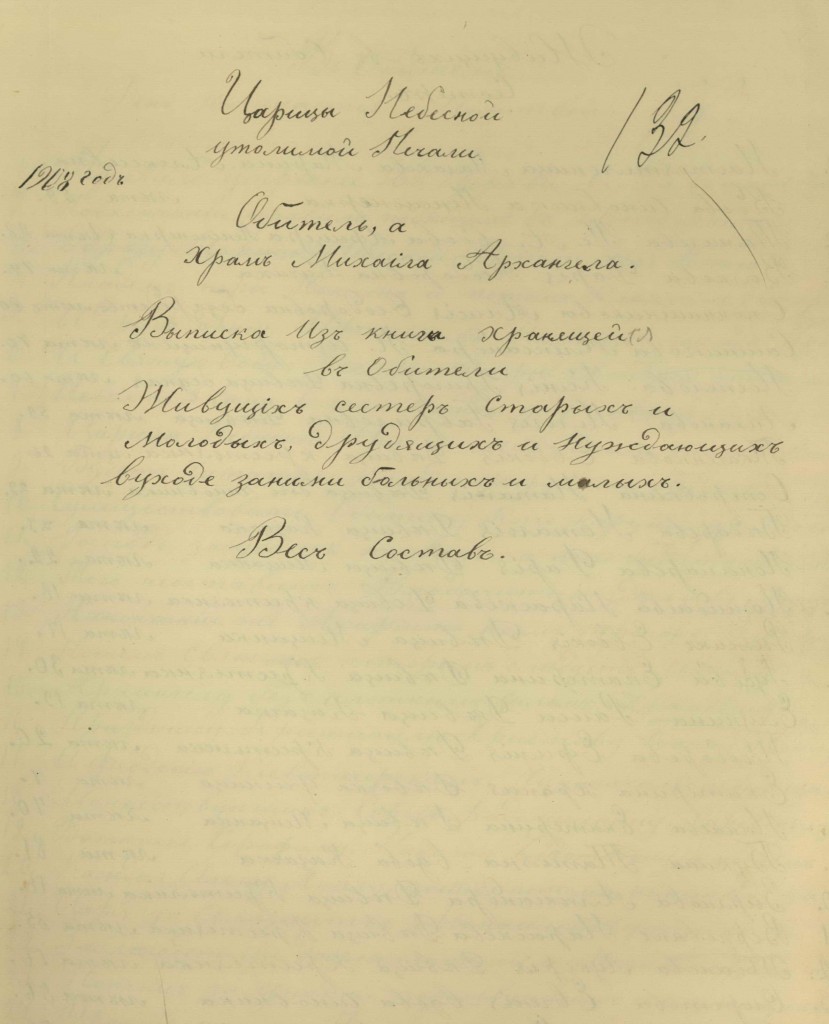 Царицы Небесной
утолимой Печали
132.
1908 годъ
Обитель, а
храмъ Михаіла Архангела.
Выписка Изъ книга хранящей(ся)
въ Обители
Живущіхъ сестеръ Старыхъ и
Молодыхъ, Друдящихъ и Нуждающихъ
вуходе заними больнихъ и малыхъ.
Весь Составъ.